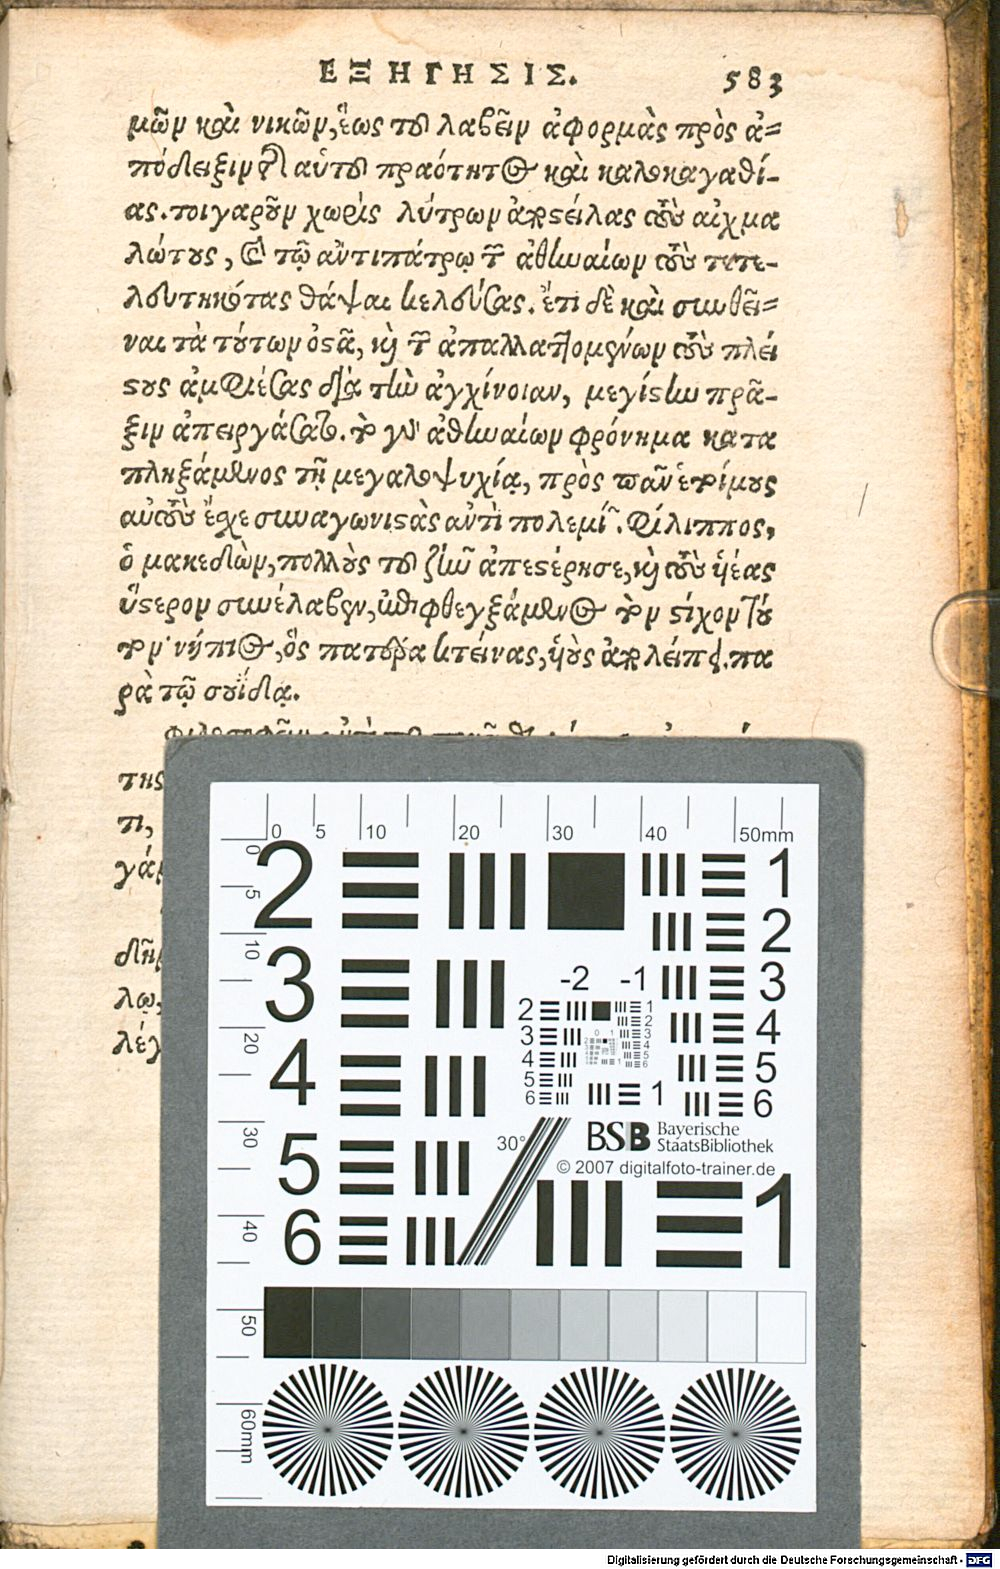 ΕΞΗΓΗΣΙΣ. 583
μῶν καὶ νικῶν, ἕως τοῦ λαβεῖν ἀφορμὰς πρὸς ἀ=
πόδειξιν τῆς αὑτοῦ πραότητος καὶ καλοκαγαθί-
ας. τοιγαροῦν χωρὶς λύτρων ἀποστείλας τοὺς αἰχμα
λώτους, καὶ τῷ ἀντιπάτρῳ τῶν ἀθηναίων τοὺς τετε-
λευτηκότας θάψαι κελεύσας. ἔτι δὲ καὶ συνθεῖ=
ναι τὰ τούτων ὀστᾶ, καὶ τῶν ἀπαλλαττομένων τοὺς πλεί
στους ἀμφιέσας διὰ τὴν ἀγχίνοιαν, μεγίστην πρᾶ-
ξιν ἀπειργάσατο. τὸ γὰρ ἀθηναίων φρόνημα κατα
πληξάμενος τῇ μεγαλοψυχίᾳ, πρὸς πᾶν ἑτοίμους
αὐτοὺς ἔχε συναγωνιστὰς ἀντὶ πολεμίων. Φίλιππος,
ὁ μακεδὼν, πολλοὺς τοῦ ζῆν ἀπεστέρησε, καὶ τοὺς υἱέας
ὕστερον συνέλαβεν, ἐπιφθεγξάμενος τὸν στίχον τοῦ
τον· νήπιος, ὃς πατέρα κτείνας, υἱοὺς ἀπολείπει. πα
ρὰ τῷ σουίδᾳ.
της
τι,
λῳ,
0 5 10 20 30 40 50mm
0 5 10 20 30 40 50 60mm
2 1
3 2
4 3
5 4
6 5
6
-2 -1
2 1
3 2
4 3
5 4
6 5
6
1
30°
BSB Bayerische
StaatsBibliothek
© 2007 digitalfoto-trainer.de
1
Digitalisierung gefördert durch die Deutsche Forschungsgemeinschaft - DFG